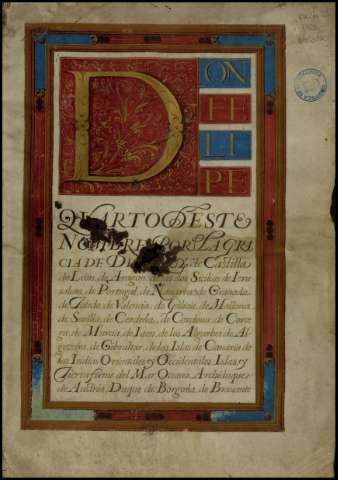 DON
FE
LI
PE
QVARTO DESTE
NOMBRE POR LA GRA
CIA DE D Rey de Castilla
de Leon, de Aragon, de las dos Sicilias de Ieru
salem, de Portugal, de Nauarra, de Granada
de Toledo, de Valencia, de Galicia, de Mallorca
de Seuilla, de Cerdeña, de Cordoua, de Corce
ga, de Murcia, de Iaen, de los Algarbes de Al
gecira, de Gibraltar, de las Islas de Canaria, de
las Indias Orientales y Occidentales, Islas y
Tierra firme del Mar Oceano, Archiduque
de Austria, Duque de Borgoña, de Brauante